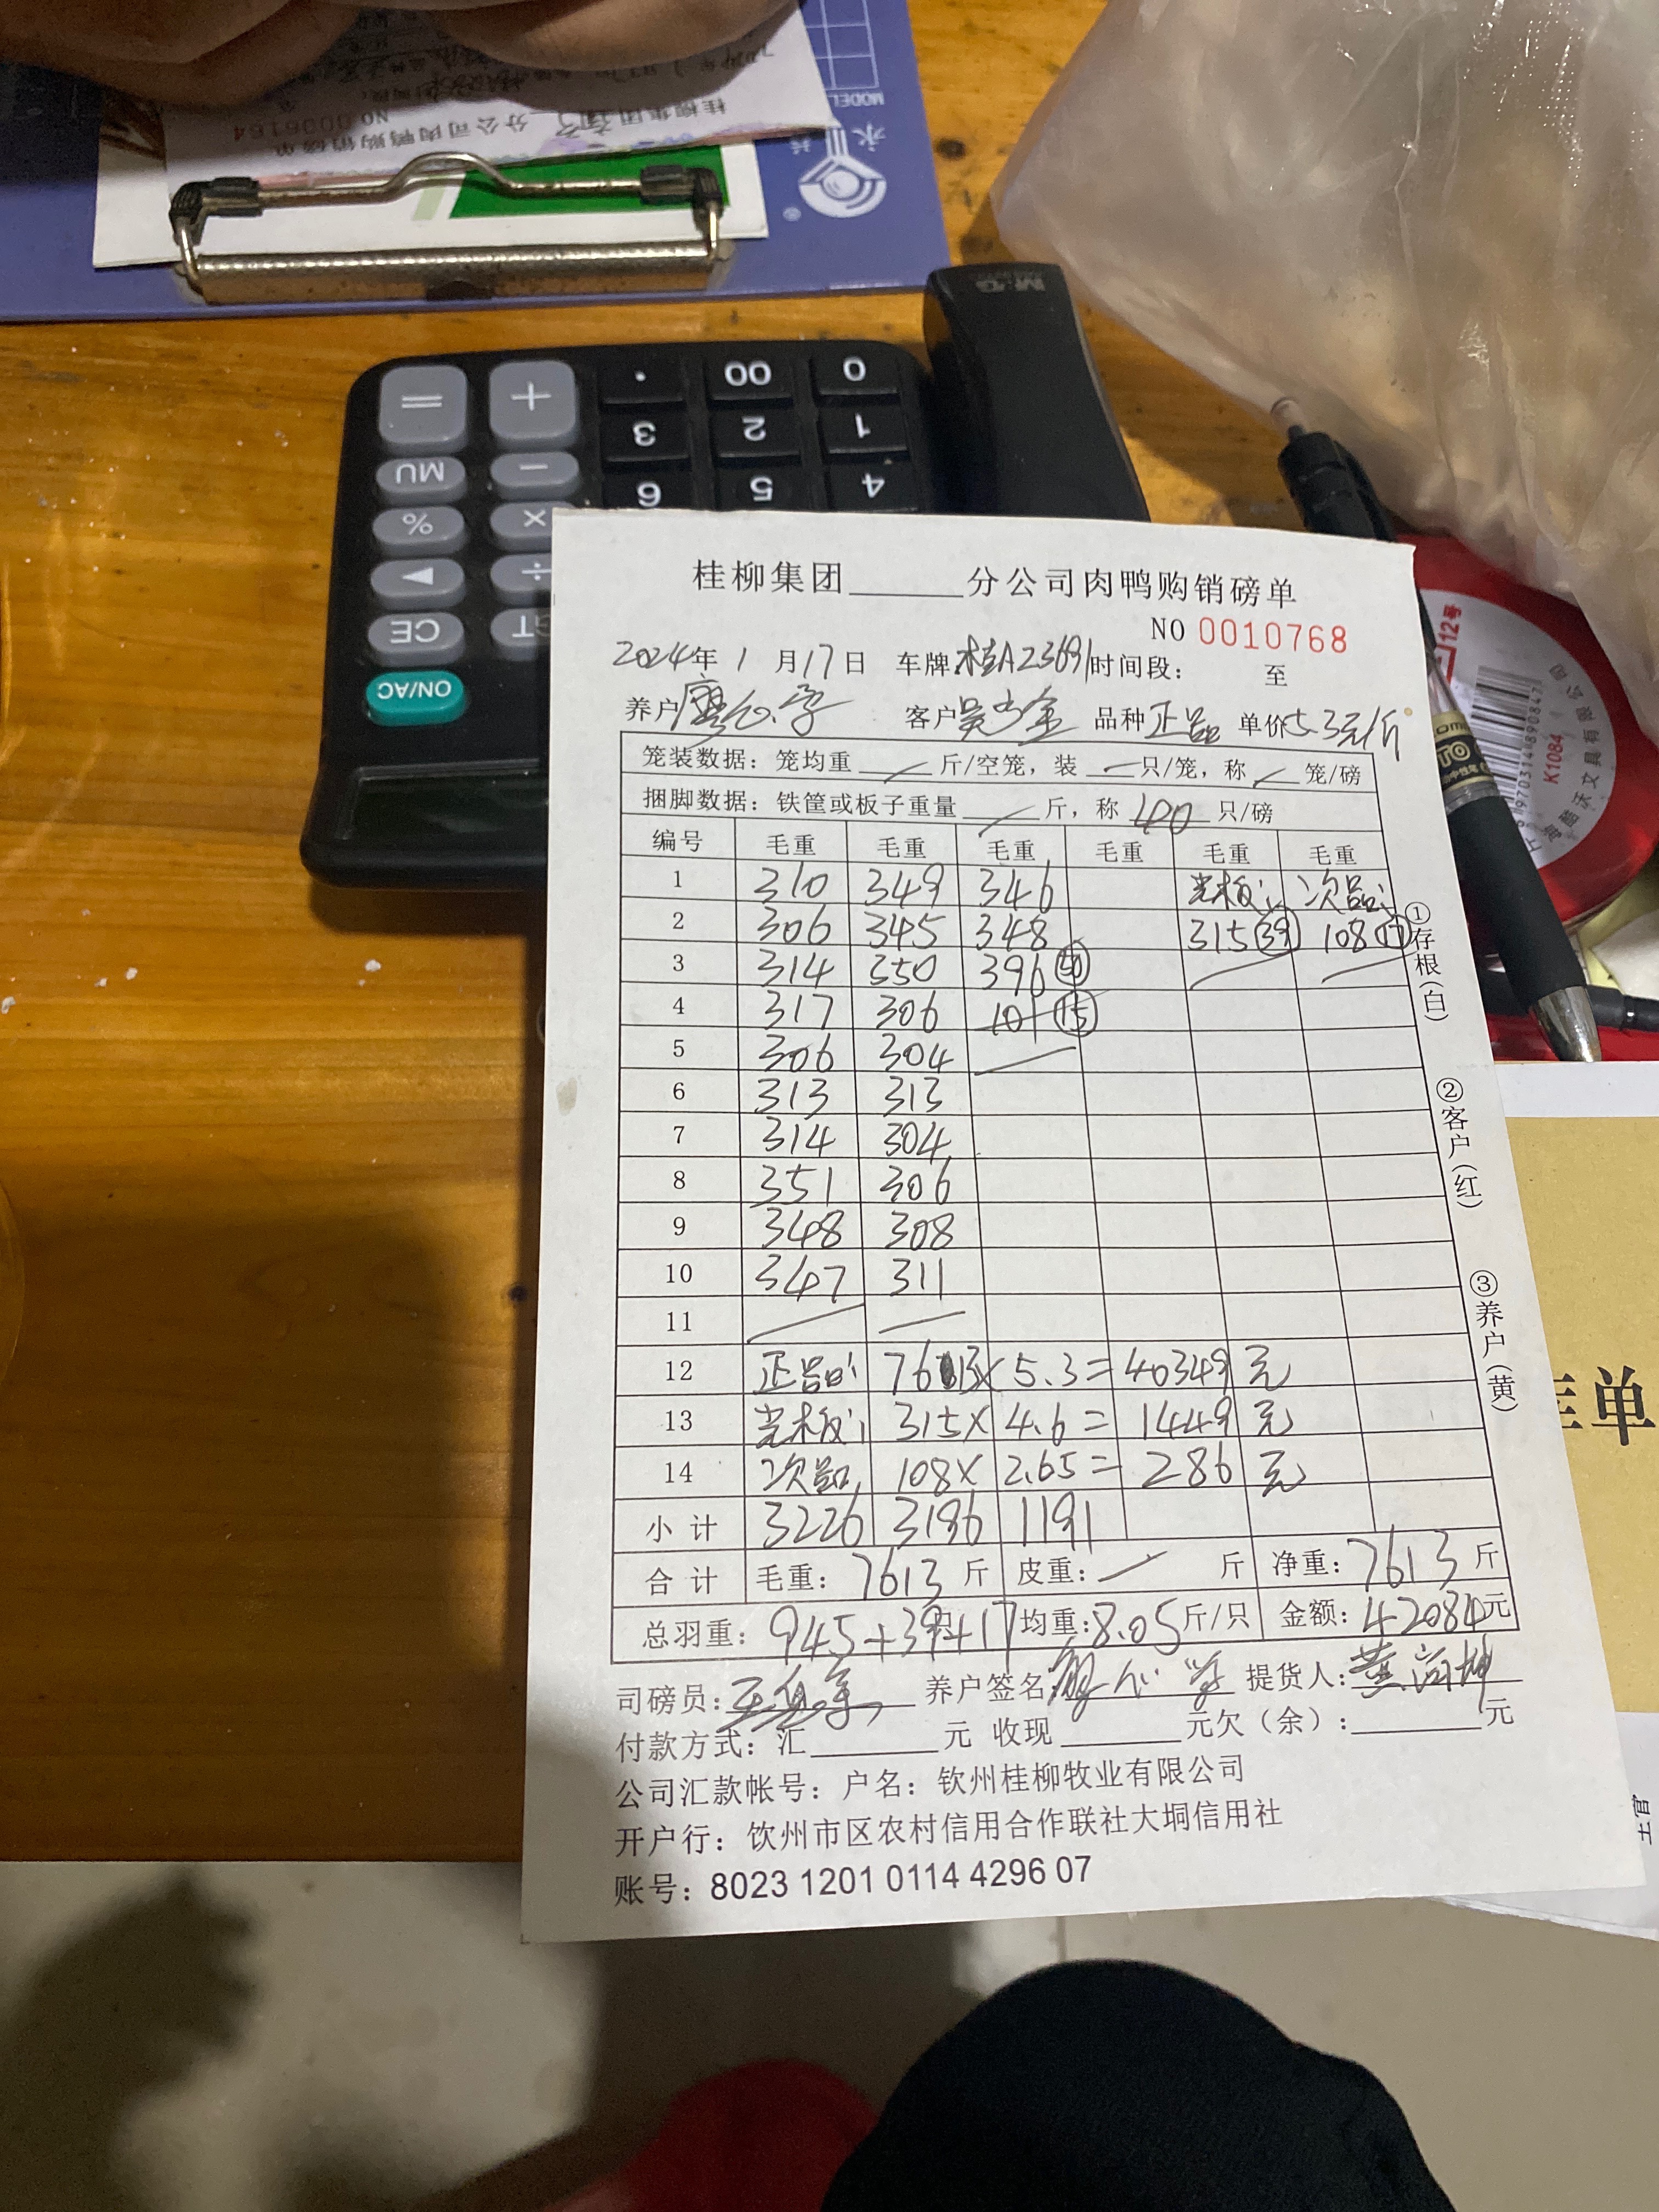 桂柳集团 分公司肉鸭购销磅单
NO 0006164
MODEL
永
M&G
0 00 . + =
1 2 3
4 5 6 − MU
× %
÷ ▶
GT CE
ON/AC
12号
6970314890847
K1084
单
桂柳集团______分公司肉鸭购销磅单
NO 0010768
2024年 1 月 17 日 车牌 桂A23691 时间段: 至
养户 客户 品种 正品 单价 5.3元/斤
笼装数据: 笼均重 斤/空笼, 装 只/笼, 称 笼/磅
捆脚数据: 铁筐或板子重量 斤, 称 40 只/磅
编号 毛重 毛重 毛重 毛重 毛重 毛重
1 310 349 346 光板: 次品:
2 306 345 348 315 (39) 108 (17)
3 314 350 396 (50)
4 317 306 101 (15)
5 306 304
6 313 313
7 314 304
8 351 306
9 348 308
10 347 311
11
12 正品: 7613 × 5.3 = 40349 元
13 光板: 315 × 4.6 = 1449 元
14 次品: 108 × 2.65 = 286 元
小计 3226 3196 1191
合计 毛重: 7613 斤 皮重: 斤 净重: 7613 斤
总羽重: 945+39+17 只 均重: 8.05 斤/只 金额: 42084元
司磅员: 养户签名: 提货人:
付款方式: 汇______元 收现______元欠(余):______元
公司汇款帐号: 户名: 钦州桂柳牧业有限公司
开户行: 钦州市区农村信用合作联社大垌信用社
账号: 8023 1201 0114 4296 07
①存根(白)
②客户(红)
③养户(黄)